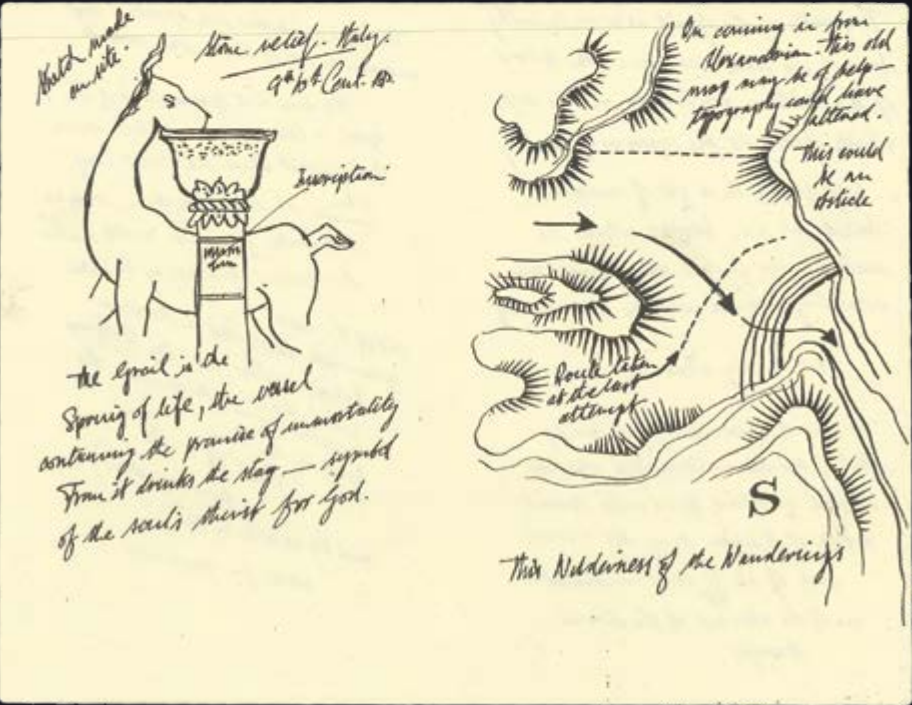 Sketch made
on site.
Stone relief. Italy.
9th Cent. AD
Inscription
The Grail is the
Spring of life, the vessel
containing the promise of immortality
From it drinks the stag — symbol
of the soul's thirst for God.
On coming in from
Alexandria. This old
map may be of help —
topography could have
altered.
This could
be an
article
Route taken
at the last
attempt
S
This Wilderness of the Wanderings